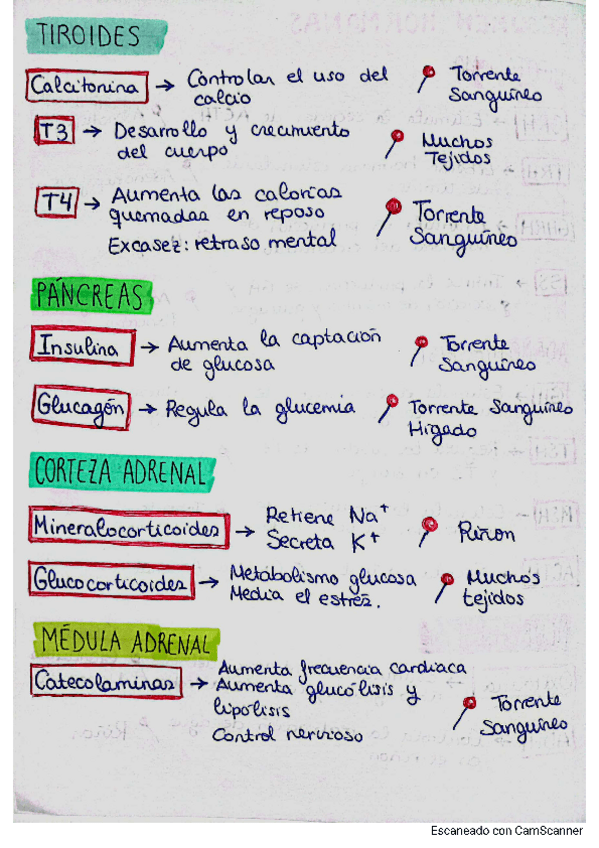 TIROIDES
Calcitonina → Controlar el uso del
calcio
Torrente
Sanguíneo
T3 → Desarrollo y crecimiento
del cuerpo
Muchos
Tejidos
T4 → Aumenta las calorías
quemadas en reposo
Excasez: retraso mental
Torrente
Sanguíneo
PÁNCREAS
Insulina → Aumenta la captación
de glucosa
Torrente
Sanguíneo
Glucagón → Regula la glucemia
Torrente Sanguíneo
Hígado
CORTEZA ADRENAL
Mineralocorticoides → Retiene Na⁺
Secreta K⁺
Riñon
Glucocorticoides → Metabolismo glucosa
Media el estrés.
Muchos
tejidos
MÉDULA ADRENAL
Catecolaminas → Aumenta frecuencia cardiaca
Aumenta glucólisis y
lipólisis
Control nervioso
Torrente
Sanguíneo
Escaneado con CamScanner